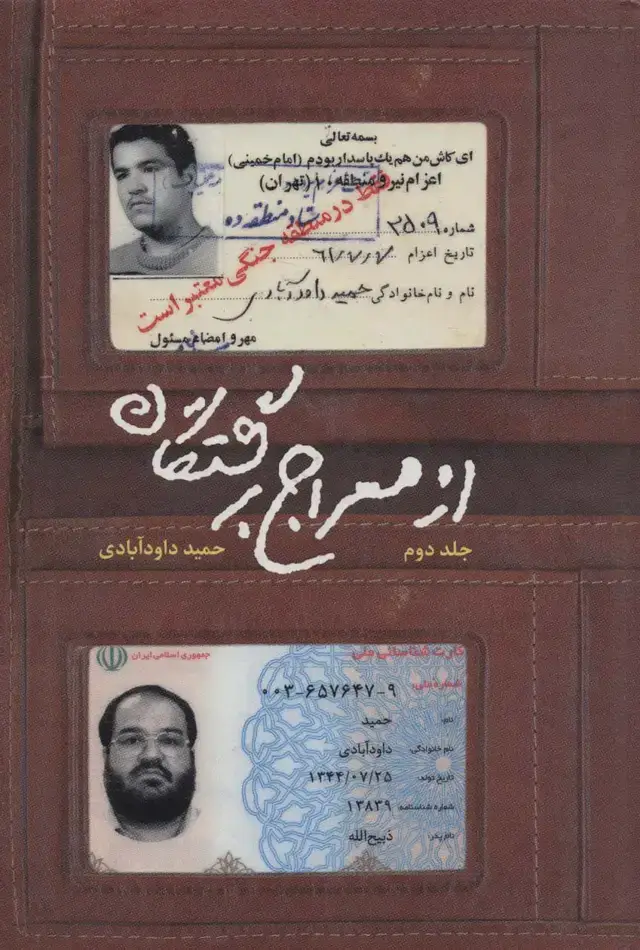 بسمه تعالی
ای کاش من هم یک پاسدار بودم (امام خمینی)
اعزام نیرو منطقه ۱۰ (تهران)
فقط در منطقه جنگی معتبر است
شماره ۳۵۰۹
تاریخ اعزام
نام و نام خانوادگی حمید داودآبادی
مهر و امضاء مسئول
از معراج برگشتگان
جلد دوم
حمید داودآبادی
جمهوری اسلامی ایران
کارت شناسائی ملی
شماره ملی: ۰۰۳-۶۵۷۶۴۷-۹
نام: حمید
نام خانوادگی: داودآبادی
تاریخ تولد: ۱۳۴۴/۰۷/۲۵
شماره شناسنامه: ۱۳۸۳۹
نام پدر: ذبیح‌الله